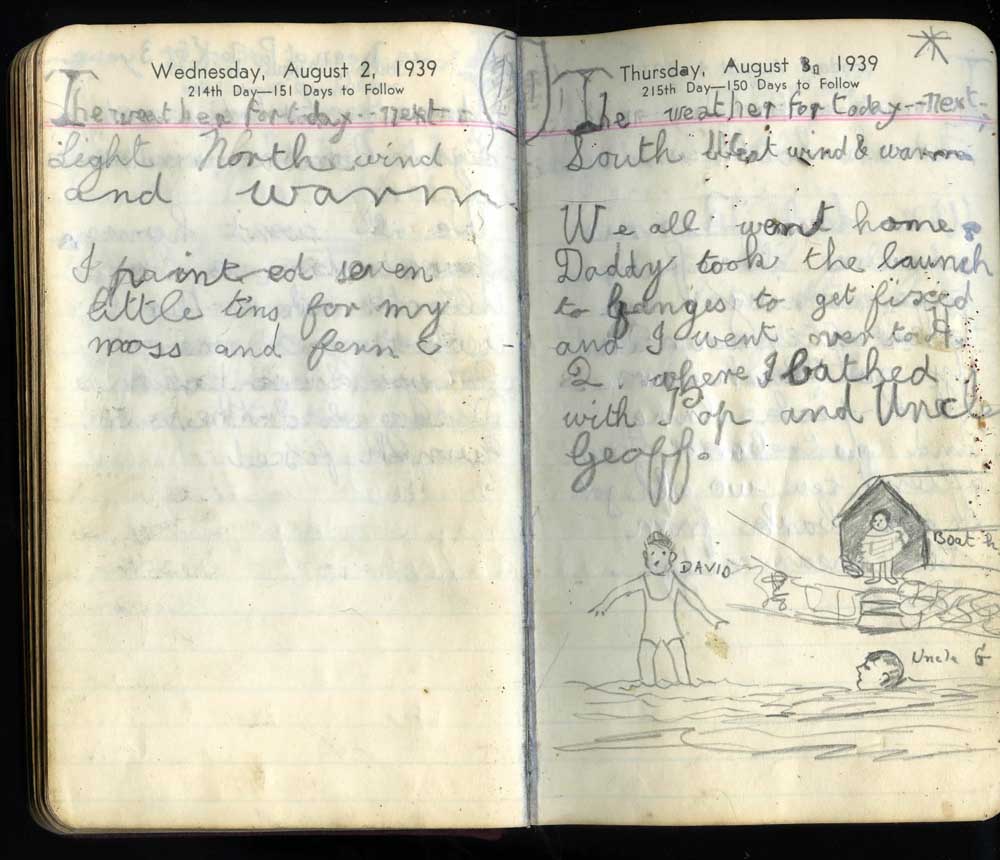 Wednesday, August 2, 1939
214th Day—151 Days to Follow
The weather for today--next-
Light North wind
and warm
I painted seven
little tins for my
moss and fern
Thursday, August 3, 1939
215th Day—150 Days to Follow
The weather for today--next-
South wind & warm
We all went home.
Daddy took the launch
to to get fixed
and I went over to
2. where I bathed
with Pop and Uncle
Geoff.
DAVID
Boat h
Uncle G